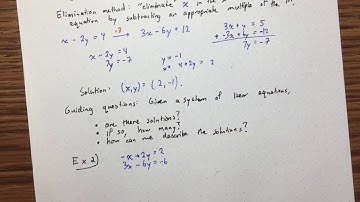 Elimination method: "eliminate" x in the
equation by subtracting an appropriate multiple of the
x - 2y = 4 →·3 3x - 6y = 12
3x + y = 5
- 3x + 6y = -12
7y = -7
x - 2y = 4
7y = -7
y = -1
x = 4 + 2y = 2
Solution: (x,y) = (2,-1).
Guiding questions: Given a system of linear equations,
• are there solutions?
• if so, how many?
• how can we describe the solutions?
Ex 2)
-x + 2y = 2
3x - 6y = -6